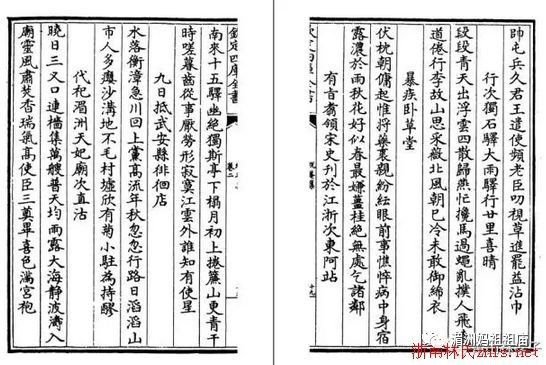 帥屯兵久君王遣使頻老臣叨視草進罷益沾巾
行次獨石驛大雨驛行廿里喜晴
段段青天出浮雲四散歸燕忙攙馬過蠅亂撲人飛
道倦行李故山思采薇北風朝已冷未敢御絺衣
暴疾卧草堂
伏枕朝慵起惟將藥裹親紛紜眼前事憔悴病中身宿
露濃於雨秋花好似春最嫌薑桂絕無處乞諸鄰
有旨翥領宋史刊於江浙次東阿站
欽定四庫全書
卷二
南來十五驛幽絕獨斯亭下榻月初上捲簾山更青干
時嗟暮齒從事厭勞形寂寞江雲外誰知有使星
九日抵武安縣徘徊店
水落衡漳急川回上黨高流年秋忽忽行路日滔滔山
市人多癭沙溝地不毛村墟欣有菊小駐為持醪
代祀湄洲天妃廟次直沽
曉日三叉口連檣集萬艘普天均雨露大海靜波濤入
廟靈風肅焚香瑞氣高使臣三奠畢喜色滿宮袍
湄洲妈祖祖庙
浙南林氏znls.net